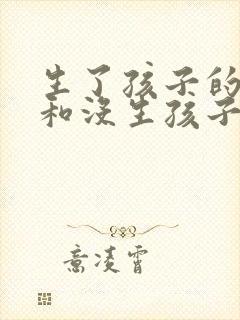 生了孩子的
和没生孩子
意凌霄